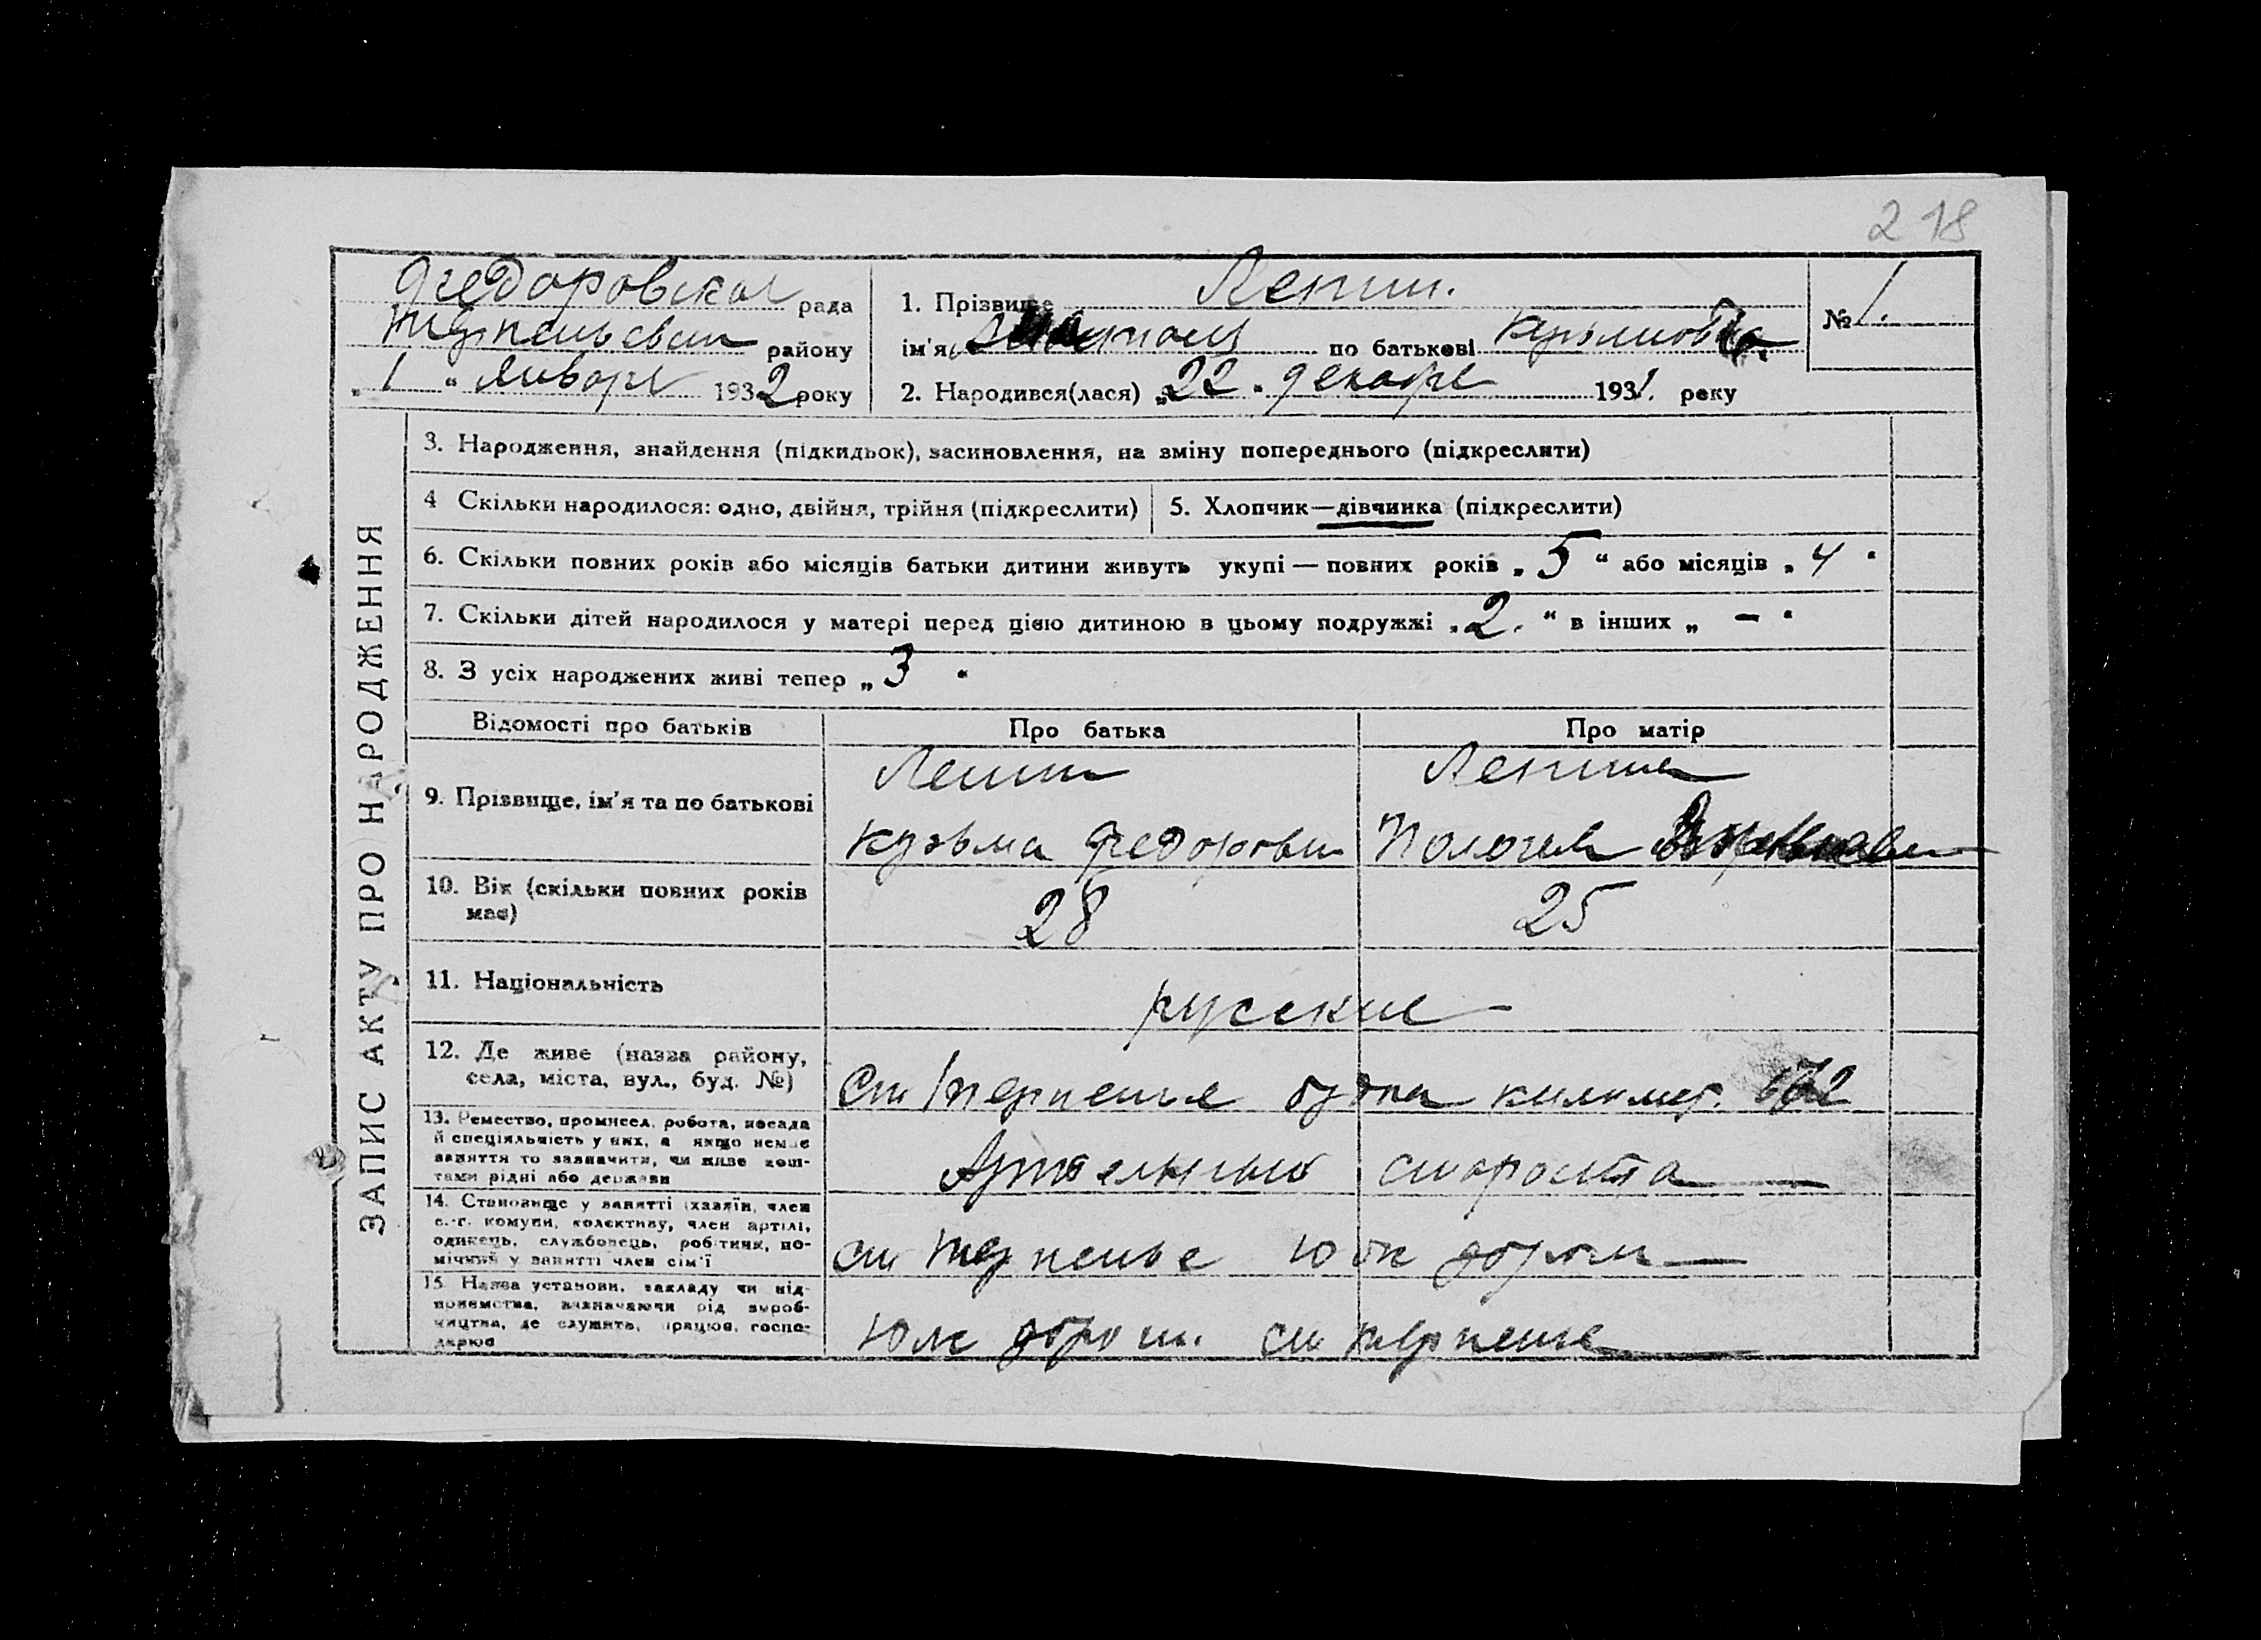 218
Федоровская рада
району
„ 1 “ Января 1932 року
1. Прізвище Лепин.
ім'я по батькові Кузьмовна
№ 1.
2. Народився(лася) „22“ декабря 1931. року
ЗАПИС АКТУ ПРО НАРОДЖЕННЯ
3. Народження, знайдення (підкидьок), засиновлення, на зміну попереднього (підкреслити)
4 Скільки народилося: одно, двійня, трійня (підкреслити)
5. Хлопчик—дівчинка (підкреслити)
6. Скільки повних років або місяців батьки дитини живуть укупі — повних років „ 5 “ або місяців „ 4 “
7. Скільки дітей народилося у матері перед цією дитиною в цьому подружжі „2. “ в інших „ – “
8. З усіх народжених живі тепер „ 3 “
Відомості про батьків
Про батька
Про матір
9. Прізвище, ім'я та по батькові
Лепин
Кузьма Федорович
Лепина
10. Вік (скільки повних років
має)
28
25
11. Національність
русские
12. Де живе (назва району,
села, міста, вул., буд. №)
Ст Терпенье будка километ. 672
13. Ремество, промисел, робота, посада
й спеціяльність у них, а якщо немає
заняття то зазначити, чи живе кош-
тами рідні або держави
Артельный староста
14. Становище у занятті (хазяїн, член
с.-г. комуни, колективу, член артілі,
одинець, службовець, робітник, по-
мічний у занятті член сім'ї
ст Терпенье Юж дороги
15. Назва установи, закладу чи під-
приємства, зазначаючи рід вироб-
ництва, де служить, працює, госпо-
дарює
Юж дороги. ст Терпенье